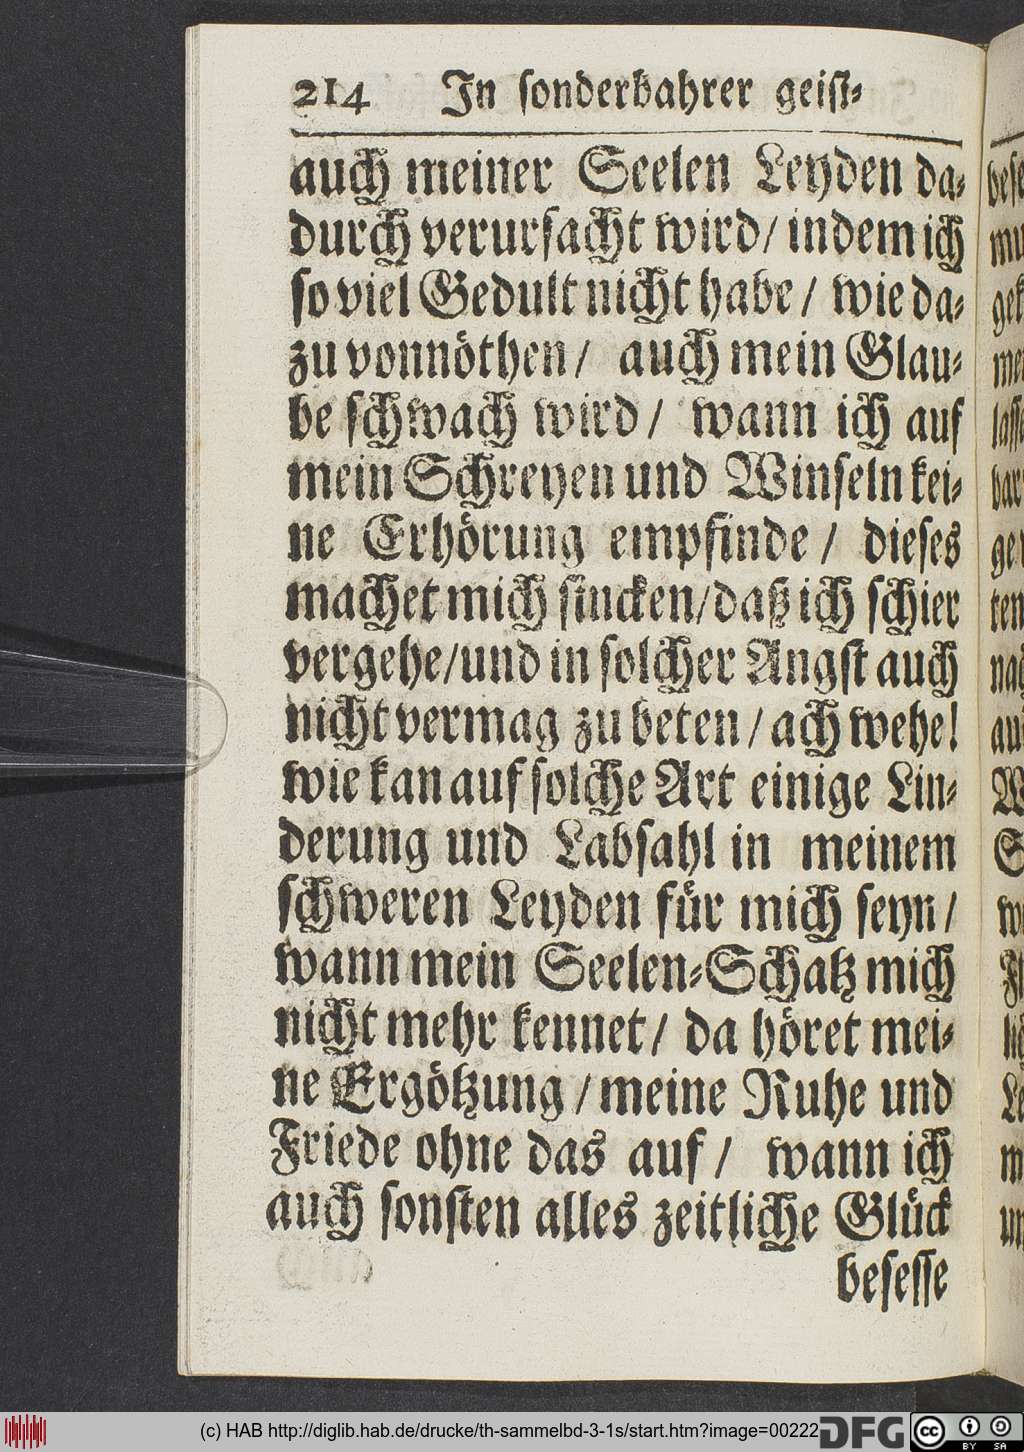 214 In sonderbahrer geist-
auch meiner Seelen Leyden da-
durch verursacht wird/ indem ich
so viel Gedult nicht habe/ wie da-
zu vonnöthen/ auch mein Glau-
be schwach wird/ wann ich auf
mein Schreyen und Winseln kei-
ne Erhörung empfinde/ dieses
machet mich sincken/daß ich schier
vergehe/und in solcher Angst auch
nicht vermag zu beten/ach wehe!
wie kan auf solche Art einige Lin-
derung und Labsahl in meinem
schweren Leyden für mich seyn/
wann mein Seelen-Schatz mich
nicht mehr kennet/ da höret mei-
ne Ergötzung/meine Ruhe und
Friede ohne das auf/ wann ich
auch sonsten alles zeitliche Glück
besesse
(c) HAB http://diglib.hab.de/drucke/th-sammelbd-3-1s/start.htm?image=00222
DFG
cc BY SA